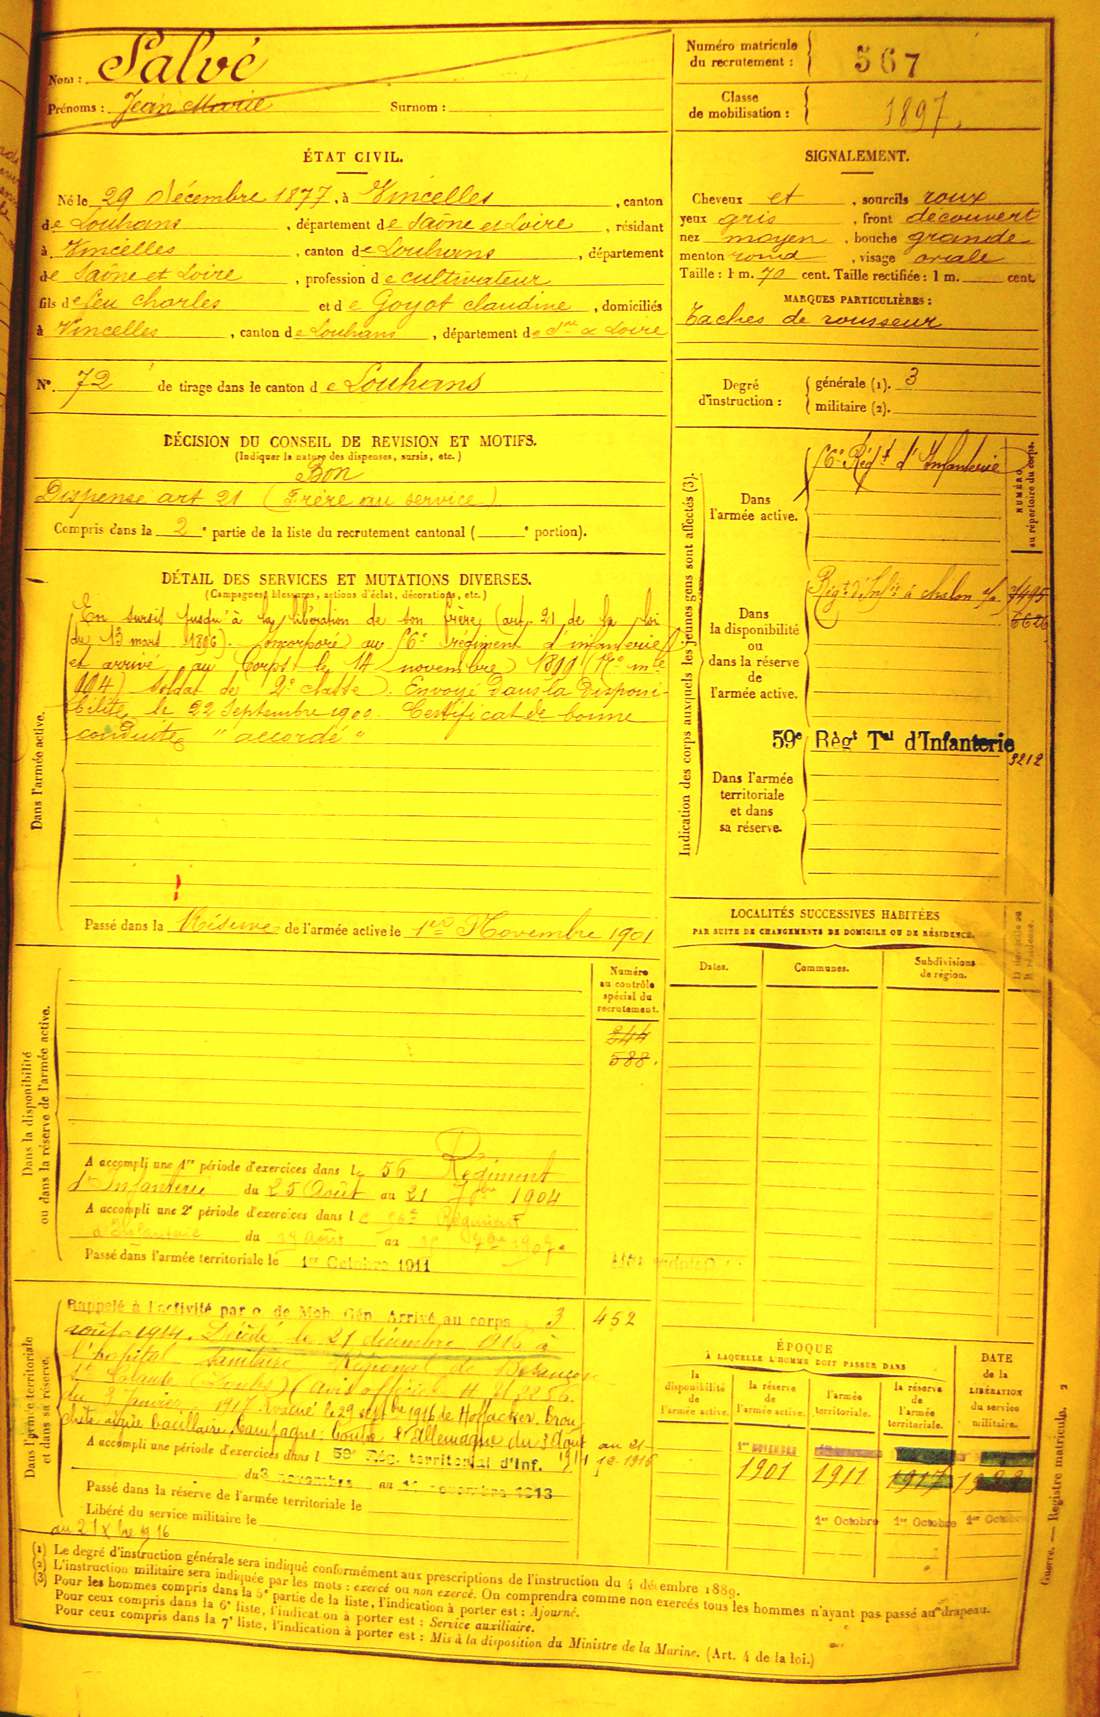 Nom : Salvé
Prénoms : Jean Marie Surnom :
Numéro matricule
du recrutement : 567
Classe
de mobilisation : 1897.
ÉTAT CIVIL.
Né le 29 Décembre 1877, à Vincelles, canton
de Louhans, département de Saône et Loire, résidant
à Vincelles, canton de Louhans, département
de Saône et Loire, profession de cultivateur
fils de feu Charles et de Goyot Claudine, domiciliés
à Vincelles, canton de Louhans, département de Sne & Loire
N°. 72 de tirage dans le canton de Louhans
SIGNALEMENT.
Cheveux et, sourcils roux
yeux gris, front découvert
nez moyen, bouche grande
menton rond, visage ovale
Taille : 1 m. 70 cent. Taille rectifiée : 1 m. cent.
MARQUES PARTICULIÈRES :
Taches de rousseur
Degré
d'instruction :
générale (1). 3
militaire (2).
DÉCISION DU CONSEIL DE REVISION ET MOTIFS.
(Indiquer la nature des dispenses, sursis, etc.)
Bon
Dispense art 21 (Frère au service)
Compris dans la 2e partie de la liste du recrutement cantonal ( e portion).
DÉTAIL DES SERVICES ET MUTATIONS DIVERSES.
(Campagnes, blessures, actions d'éclat, décorations, etc.)
Dans l'armée active.
En sursis jusqu'à la libération de son frère (art. 21 de la loi
du 13 mars 1896). Incorporé au 56e régiment d'infanterie
et arrivé au Corps le 14 novembre 1899 (
994) soldat de 2e classe. Envoyé dans la disponi-
bilité le 22 Septembre 1900. Certificat de bonne
conduite "accordé"
Passé dans la Réserve de l'armée active le 1er Novembre 1901
Indication des corps auxquels les jeunes gens sont affectés (3).
NUMÉRO
au répertoire du corps.
Dans
l'armée active.
56e Régt d'Infanterie
Dans
la disponibilité
ou
dans la réserve
de
l'armée active.
Régt d'Infie à Chalon s/s
6626
59e Régt Tal d'Infanterie
3212
Dans l'armée
territoriale
et dans
sa réserve.
LOCALITÉS SUCCESSIVES HABITÉES
PAR SUITE DE CHANGEMENTS DE DOMICILE OU DE RÉSIDENCE.
Dates. Communes. Subdivisions
de région.
Dans la disponibilité
ou dans la réserve de l'armée active.
Numéro
au contrôle
spécial du
recrutement.
244
588.
A accompli une 1re période d'exercices dans le 56 Régiment
d'Infanterie du 25 Août au 21 7bre 1904
A accompli une 2e période d'exercices dans le 56e Régiment
d'Infanterie du août au
Passé dans l'armée territoriale le 1er Octobre 1911
Dans l'armée territoriale
et dans sa réserve.
Rappelé à l'activité par o. de Mob. Gén. Arrivé au corps 3 452
août 1914. Décédé le 21 décembre 1916 à
l'hopital Sanitaire Régional de
du 2 Janvier 1917 Evacué le 29 septbre 1916 de
Campagne : Contre l'Allemagne du 3 Août
1914 au 21-12-1916
A accompli une période d'exercices dans l 59e Rég. territorial d'Inf.
du 3 novembre au novembre 1913
Passé dans la réserve de l'armée territoriale le
Libéré du service militaire le
au 21 Xbre 1916
ÉPOQUE
À LAQUELLE L'HOMME DOIT PASSER DANS
DATE
de la
LIBÉRATION
du service
militaire.
la
disponibilité
de
l'armée active.
la réserve
de
l'armée active.
l'armée
territoriale.
la réserve
de
l'armée
territoriale.
1er NOVEMBRE
1901 1911 1917
1er Octobre 1er Octobre 1er Octobre
(1) Le degré d'instruction générale sera indiqué conformément aux prescriptions de l'instruction du 4 décembre 1889.
(2) L'instruction militaire sera indiquée par les mots : exercé ou non exercé. On comprendra comme non exercés tous les hommes n'ayant pas passé au drapeau.
(3) Pour les hommes compris dans la 5e partie de la liste, l'indication à porter est : Ajourné.
Pour ceux compris dans la 6e liste, l'indication à porter est : Service auxiliaire.
Pour ceux compris dans la 7e liste, l'indication à porter est : Mis à la disposition du Ministre de la Marine. (Art. 4 de la loi.)
Guerre. — Registre matricule. 2